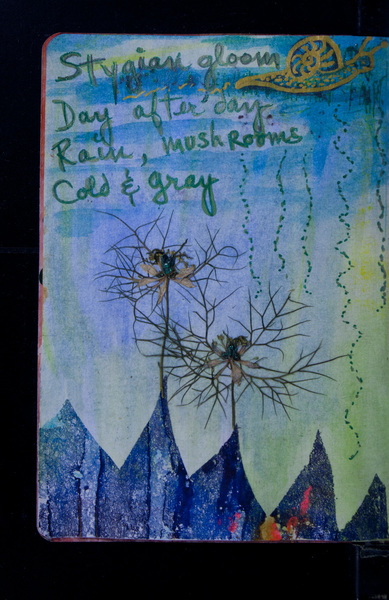 Stygian gloom
Day after day
Rain, mushrooms
Cold & gray